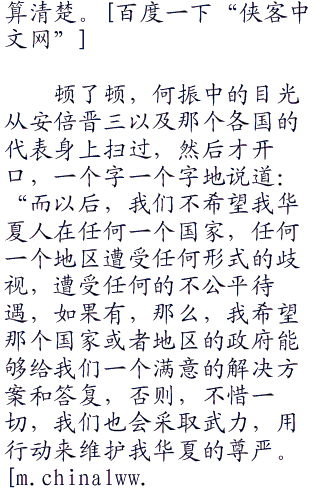 算清楚。[百度一下“侠客中
文网”]
顿了顿，何振中的目光
从安倍晋三以及那个各国的
代表身上扫过，然后才开
口，一个字一个字地说道：
“而以后，我们不希望我华
夏人在任何一个国家，任何
一个地区遭受任何形式的歧
视，遭受任何的不公平待
遇，如果有，那么，我希望
那个国家或者地区的政府能
够给我们一个满意的解决方
案和答复，否则，不惜一
切，我们也会采取武力，用
行动来维护我华夏的尊严。
[m.china1ww.